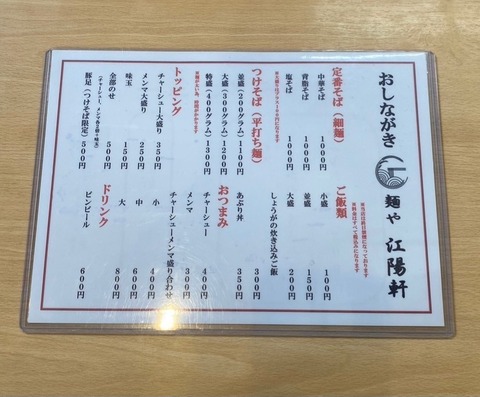 おしながき
麺や 江陽軒
※当店は前日禁煙になっております
※料金はすべて税込みになります
定番そば(細麺)
中華そば 1000円
背脂そば 1000円
塩そば 1000円
つけそば(平打ち麺)
並盛(200グラム)1100円
大盛(300グラム)1200円
特盛(400グラム)1300円
トッピング
チャーシュー大盛り 350円
メンマ大盛り 250円
味玉 150円
全部のせ 500円
豚足(つけそば限定) 500円
ご飯類
小盛 100円
並盛 150円
大盛 200円
しょうがの炊き込みご飯 300円
あぶり丼 350円
おつまみ
チャーシュー 400円
メンマ 300円
チャーシューメンマ盛り合わせ
小 400円
中 600円
大 800円
ドリンク
ビンビール 600円